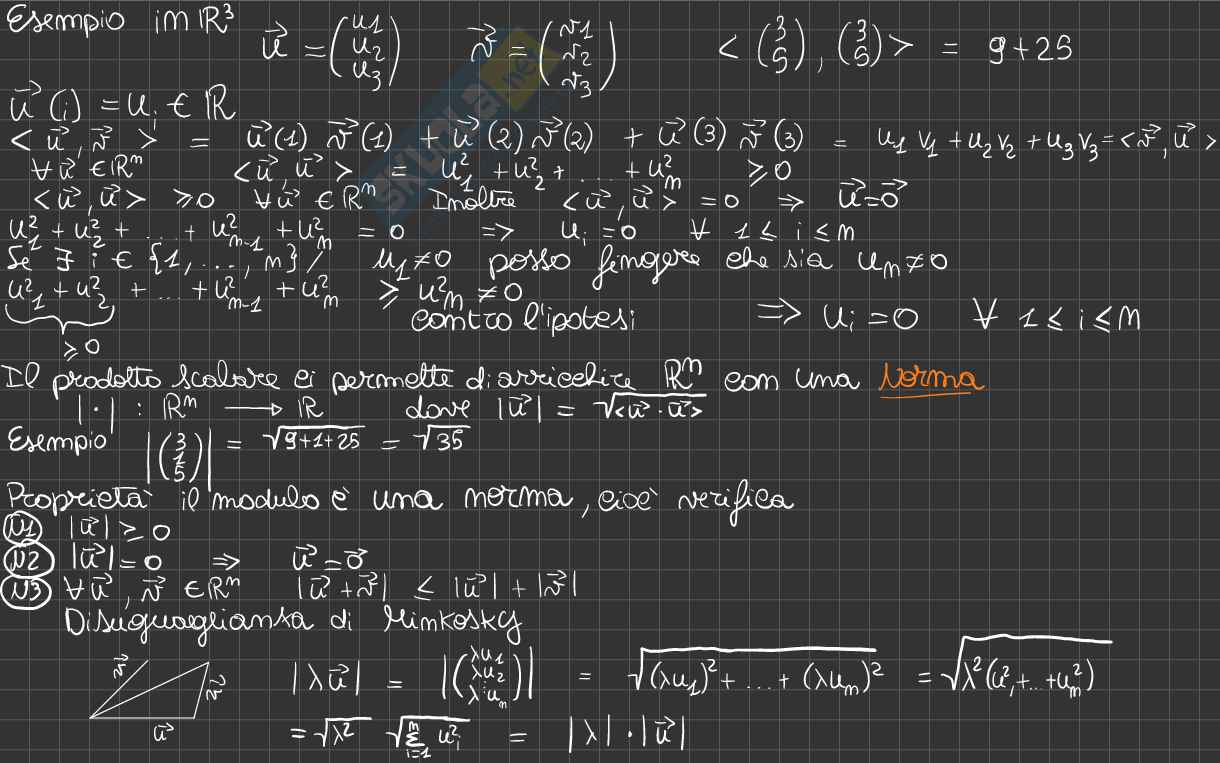 Esempio in ℝ³ u⃗ = (u1 u2 u3) v⃗ = (v1 v2 v3) < (3 5), (3 5) > = 9+25
u⃗(i) = ui ∈ ℝ
< u⃗, v⃗ > = u⃗(1) v⃗(1) + u⃗(2) v⃗(2) + u⃗(3) v⃗(3) = u1 v1 + u2 v2 + u3 v3 = < v⃗, u⃗ >
∀ u⃗ ∈ ℝⁿ < u⃗, u⃗ > = u₁² + u₂² + ... + uₙ² ≥ 0
< u⃗, u⃗ > ≥ 0 ∀ u⃗ ∈ ℝⁿ Inoltre < u⃗, u⃗ > = 0 ⇒ u⃗ = 0⃗
u₁² + u₂² + ... + uₙ₋₁² + uₙ² = 0 ⇒ ui = 0 ∀ 1 ≤ i ≤ n
Se ∃ i ∈ {1, ..., n} / u1 ≠ 0 posso fingere che sia un ≠ 0
u₁² + u₂² + ... + uₙ₋₁² + uₙ² ≥ uₙ² ≠ 0
contro l'ipotesi ⇒ ui = 0 ∀ 1 ≤ i ≤ n
≥ 0
Il prodotto scalare ci permette di arricchire ℝⁿ con una Norma
|·| : ℝⁿ → ℝ dove |u⃗| = √<u⃗ · u⃗>
Esempio |(3 1 5)| = √9+1+25 = √35
Proprietà il modulo è una norma, cioè verifica
N1 |u⃗| ≥ 0
N2 |u⃗| = 0 ⇒ u⃗ = 0⃗
N3 ∀ u⃗, v⃗ ∈ ℝⁿ |u⃗ + v⃗| ≤ |u⃗| + |v⃗|
Disuguaglianza di Minkosky
v⃗ v⃗ u⃗
|λ u⃗| = |(λu1 λu2 ⋮ λun)| = √(λu1)² + ... + (λun)² = √λ²(u₁² + ... + uₙ²)
= √λ² √∑ᵢ₌₁ⁿ uᵢ² = |λ| · |u⃗|
skuola.net